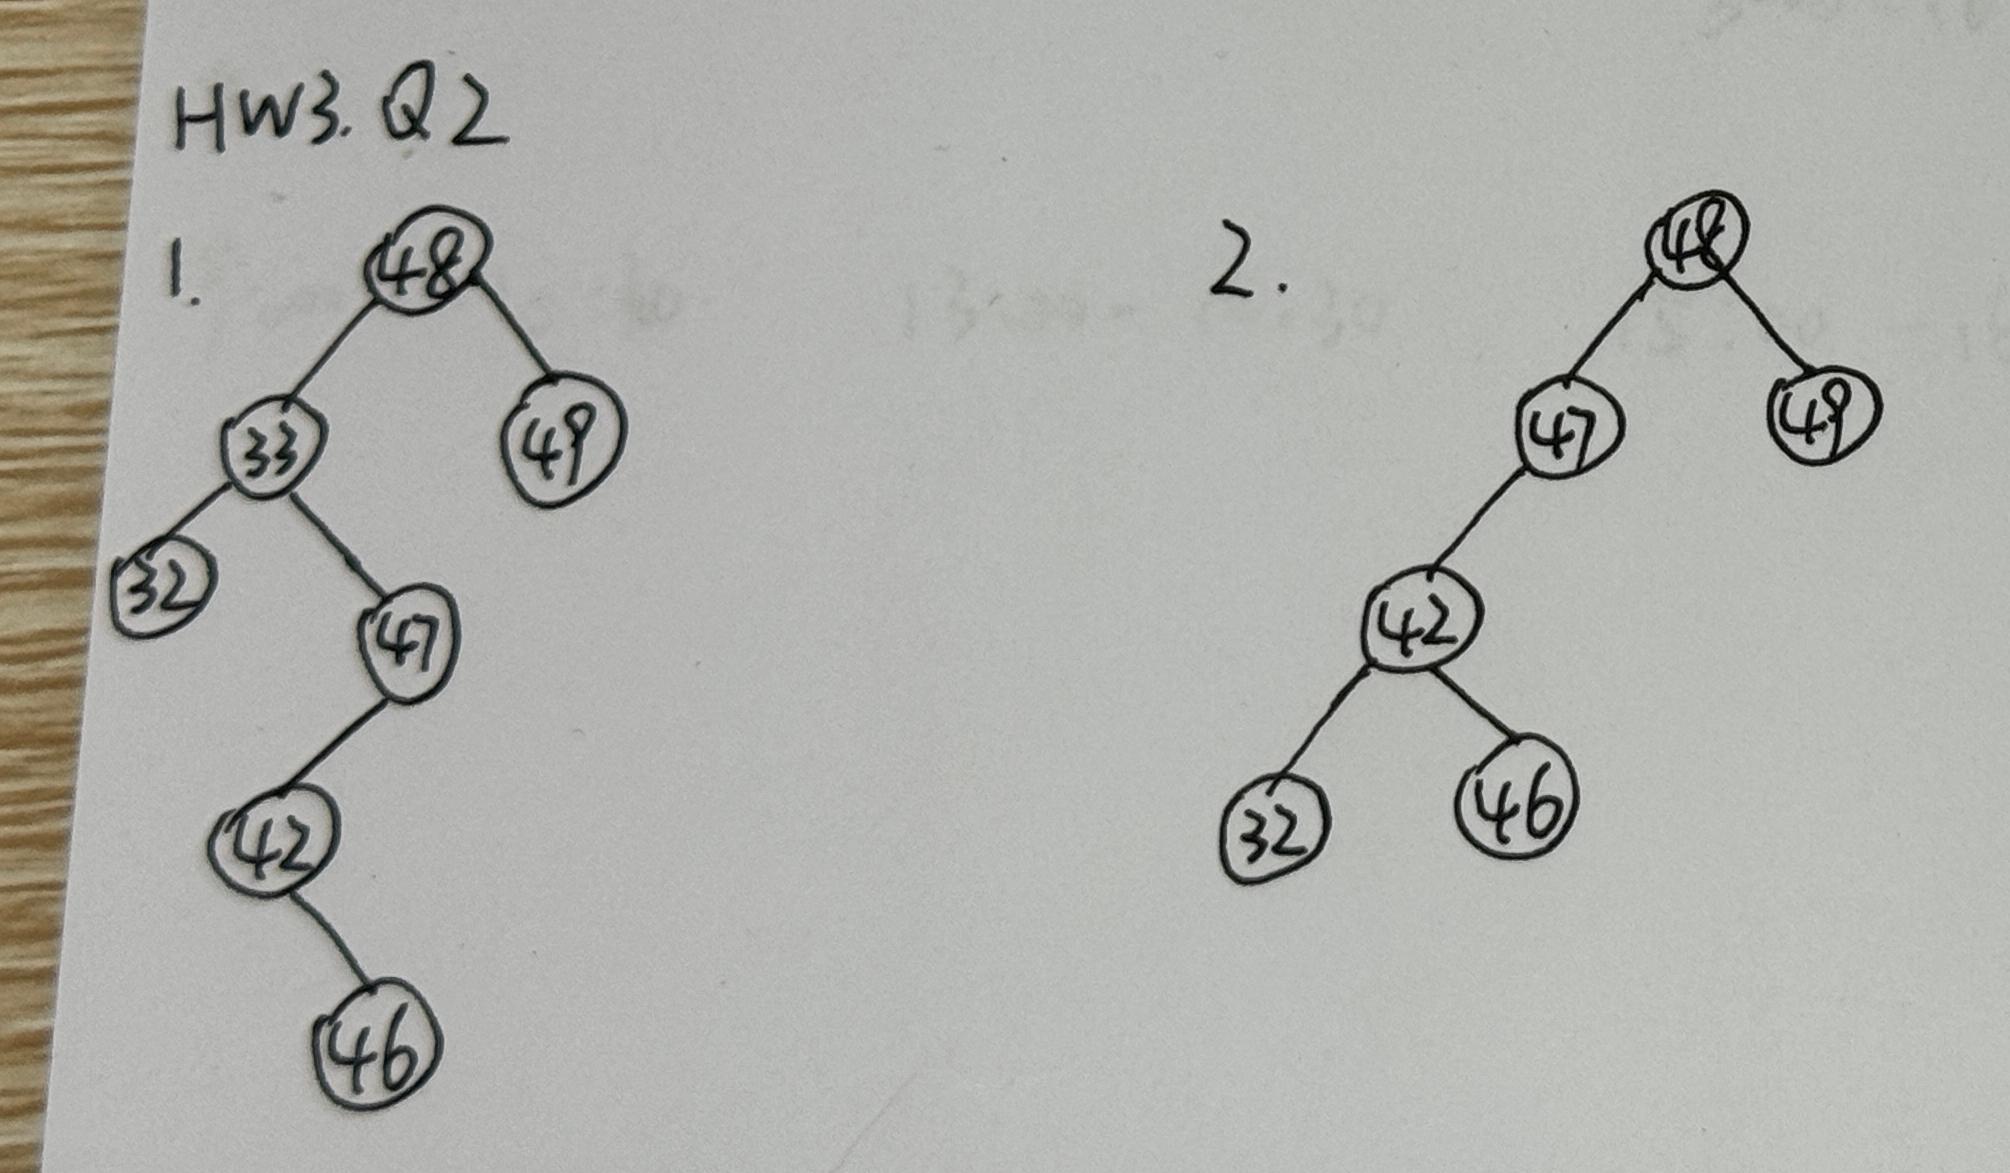 HW3. Q2
1.
48
33 49
32 47
42
46
2.
48
47 49
42
32 46